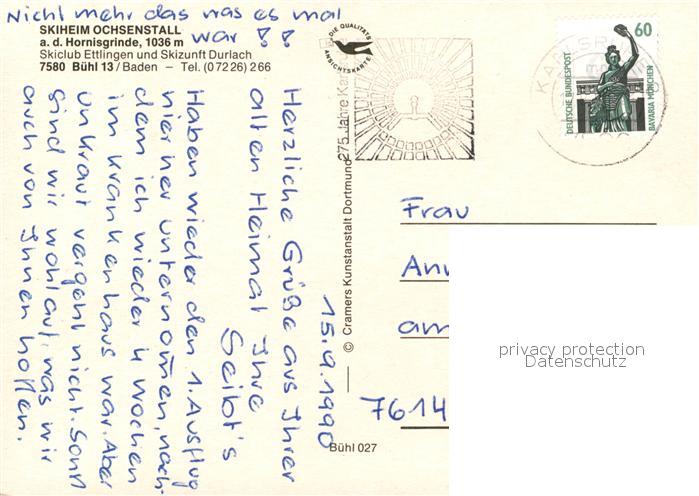 Nicht mehr das was es mal
war !!
SKIHEIM OCHSENSTALL
a. d. Hornisgrinde, 1036 m
Skiclub Ettlingen und Skizunft Durlach
7580 Bühl 13/Baden – Tel. (07226) 266
DIE QUALITÄTS
ANSICHTSKARTE
275 Jahre Kar
60
DEUTSCHE BUNDESPOST
BAVARIA MÜNCHEN
15.9.1990
Herzliche Grüße aus Ihrer
alten Heimat Ihre
Seibt's
Haben wieder den 1. Ausflug
hierher unternomen, nach-
dem ich wieder 4 Wochen
im Krankenhaus war. Aber
Unkraut vergeht nicht. Sonst
sind wir wohlauf, was wir
auch von Ihnen hoffen.
© Cramers Kunstanstalt Dortmund
Frau
am
7614
Bühl 027
privacy protection
Datenschutz